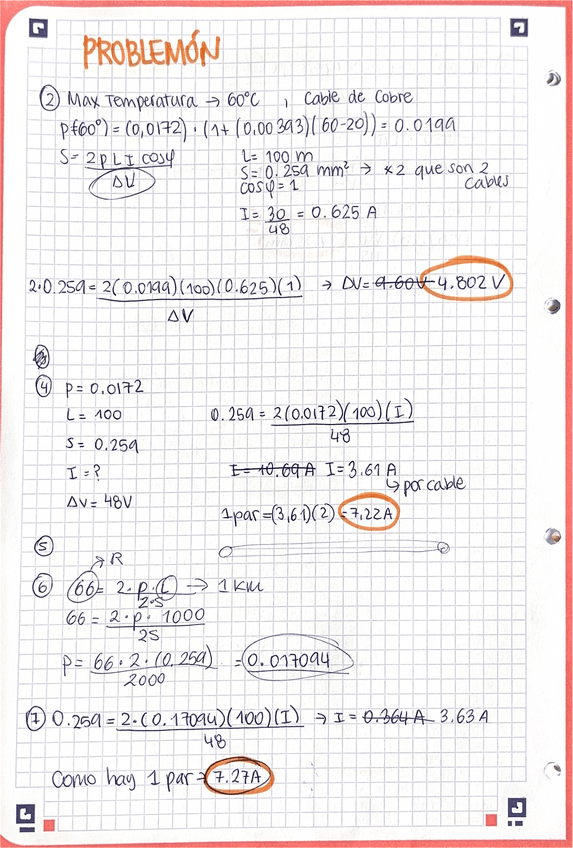 PROBLEMÓN
② Max Temperatura → 60°C , Cable de Cobre
ρ(60°) = (0,0172) · (1+(0,00393)(60-20)) = 0.0199
S = 2ρLI cosφ / ΔV
L = 100 m
S = 0.259 mm² → *2 que son 2 cables
cosφ = 1
I = 30/48 = 0.625 A
2·0.259 = 2(0.0199)(100)(0.625)(1) / ΔV → ΔV = 9.60V 4.802 V
④ ρ = 0.0172
L = 100
S = 0.259
I = ?
ΔV = 48V
0.259 = 2(0.0172)(100)(I) / 48
I = 10.69 A I = 3.61 A
↳ por cable
1 par = (3,61)(2) = 7,22A
⑤
⑥ 66 = 2·ρ·L / 2·S → 1 KM
→ R
66 = 2·ρ·1000 / 2S
ρ = 66·2·(0.259) / 2000 = 0.017094
⑦ 0.259 = 2·(0.17094)(100)(I) / 48 → I = 0.364 A 3.63 A
Como hay 1 par → 7.27A